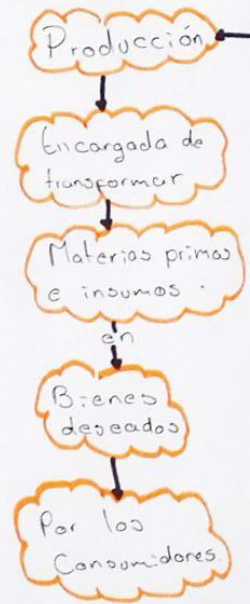 Producción
Encargada de
transformar
Materias primas
e insumos.
en
Bienes
deseados
Por los
Consumidores.